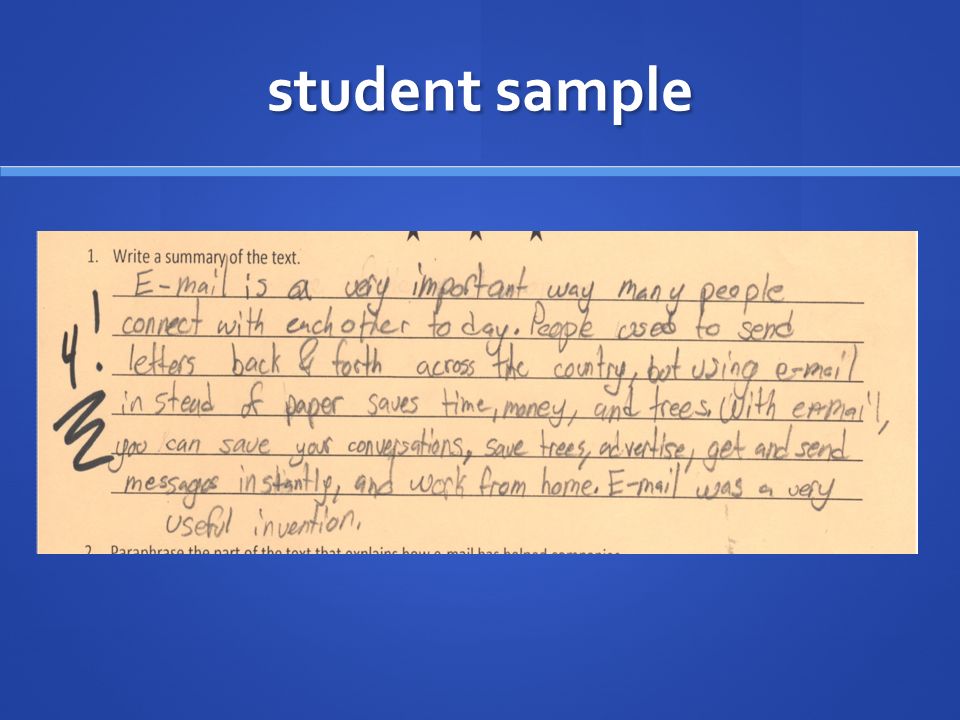 student sample
★ ★ ★
1. Write a summary of the text.
E-mail is a very important way many people
connect with each other to day. People used to send
4! letters back & forth across the country, but using e-mail
in stead of paper saves time, money, and trees. With e-mail,
you can save your conversations, save trees, advertise, get and send
messages instantly, and work from home. E-mail was a very
useful invention.
2. Paraphrase the part of the text that explains how e-mail has helped companies